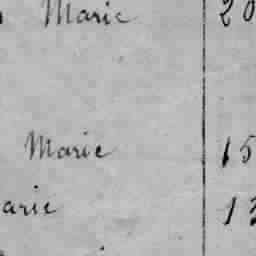 Marie 20
Marie 15
arie 13